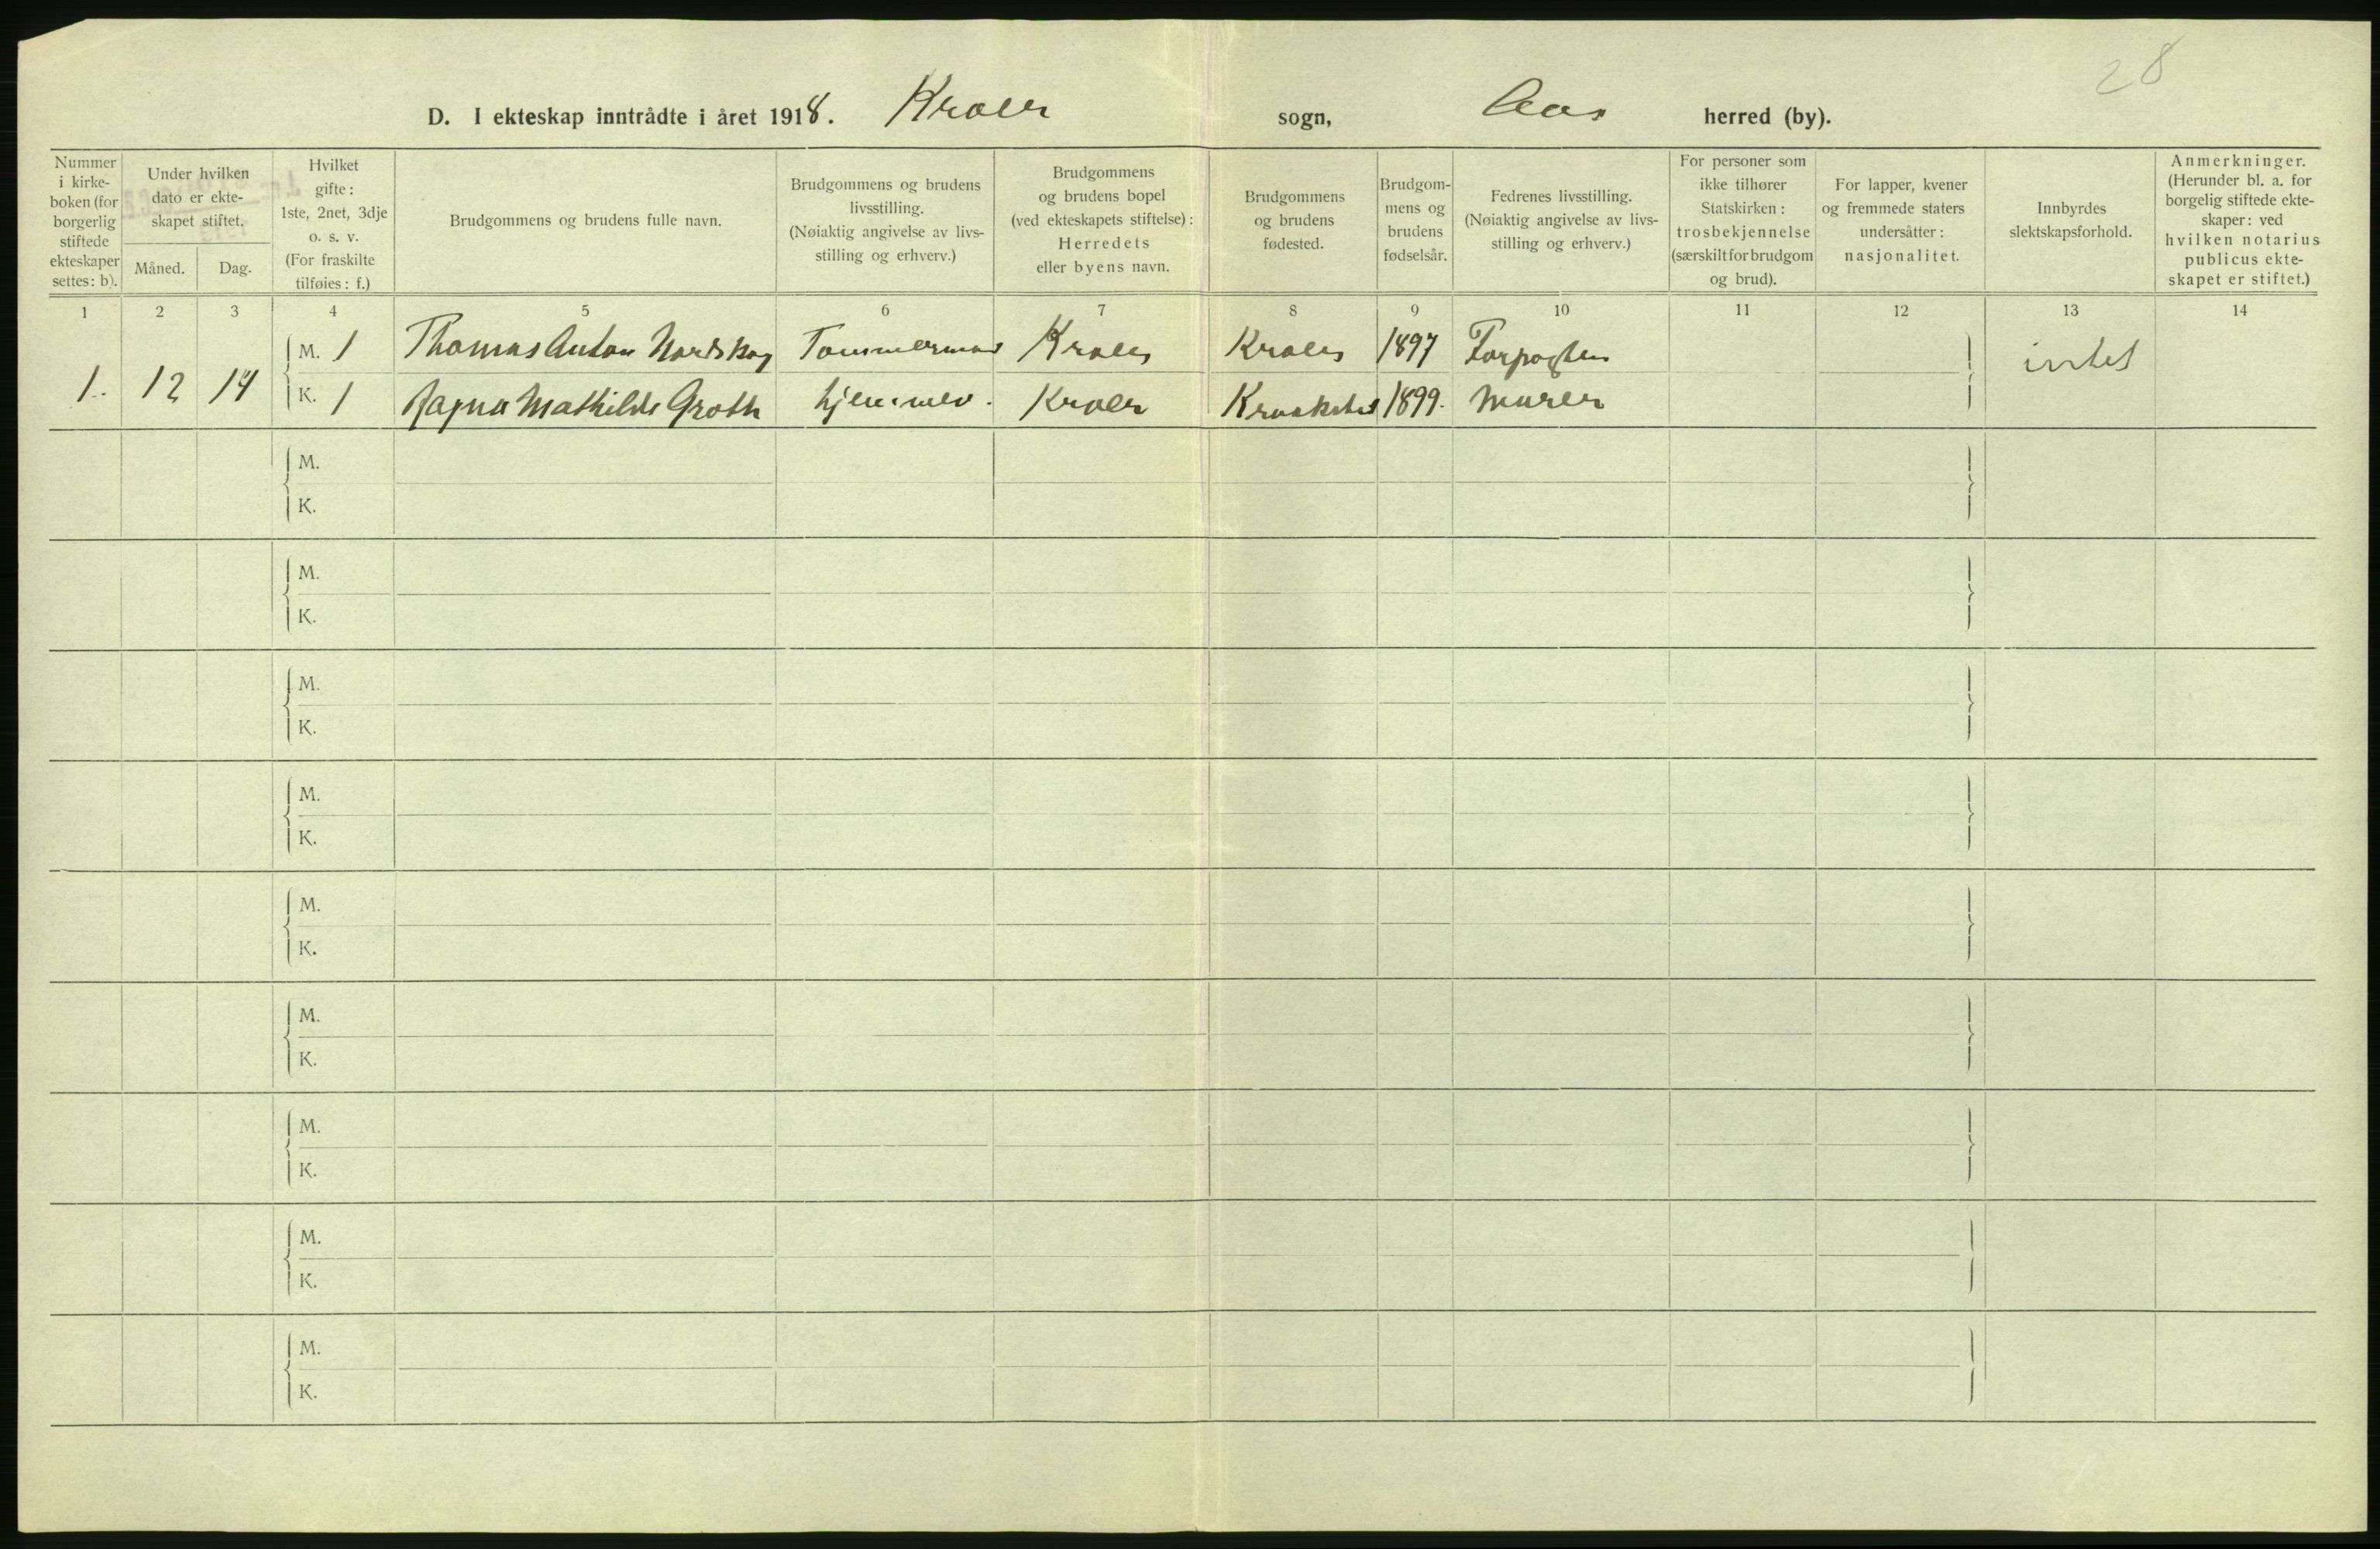 28
D. I ekteskap inntrådte i året 1918. Kroer sogn, Aas herred (by).
Nummer i kirke-boken (for borgerlig stiftede ekteskaper settes: b).
Under hvilken dato er ekte-skapet stiftet.
Måned.
Dag.
Hvilket gifte: 1ste, 2net, 3dje o. s. v. (For fraskilte tilføies: f.)
Brudgommens og brudens fulle navn.
Brudgommens og brudens livsstilling. (Nøiaktig angivelse av livs-stilling og erhverv.)
Brudgommens og brudens bopel (ved ekteskapets stiftelse): Herredets eller byens navn.
Brudgommens og brudens fødested.
Brudgom-mens og brudens fødselsår.
Fedrenes livsstilling. (Nøiaktig angivelse av livs-stilling og erhverv.)
For personer som ikke tilhører Statskirken: trosbekjennelse (særskilt for brudgom og brud).
For lapper, kvener og fremmede staters undersåtter: nasjonalitet.
Innbyrdes slektskapsforhold.
Anmerkninger. (Herunder bl. a. for borgelig stiftede ekte-skaper: ved hvilken notarius publicus ekte-skapet er stiftet.)
1 2 3 4 5 6 7 8 9 10 11 12 13 14
M. 1 Thomas Anton Nordskog Tømmermand Kroer Kroer 1897 Forpagter intet
1. 12 14 K. 1 Ragna Mathilde Groth hjemmev. Kroer Kraakstad 1899. Murer
M.
K.
M.
K.
M.
K.
M.
K.
M.
K.
M.
K.
M.
K.
M.
K.
M.
K.